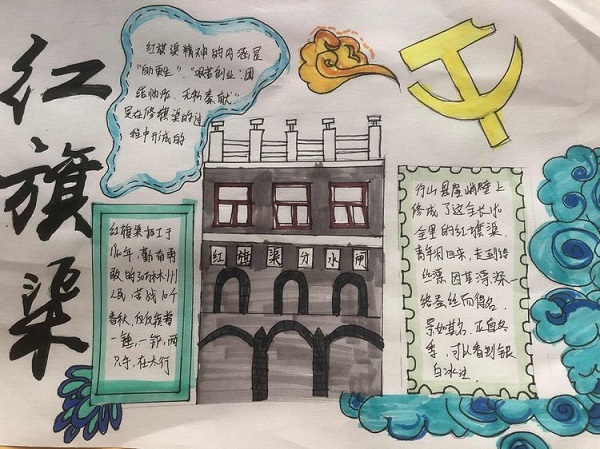 红旗渠
红旗渠精神的内涵是
"自力更生"、"艰苦创业、团
结协作、无私奉献"
是在修建渠的过
程中形成的
红旗渠分水闸
红旗渠动工于
1960年，勤劳勇
敢的30万林州
人民 苦战10个
春秋，仅仅靠着
一锤，一铲，两
只手，在太行
行山县崖峭壁上
修成了这全长
公里的红旗渠.
青年洞
丝瀑 因其薄、深
丝而得名.
景如其名，正直冬
季，可以看到银
白冰注.